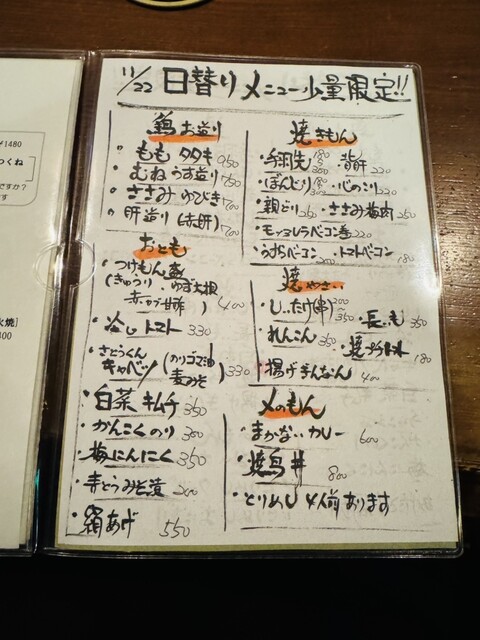 11/22 日替りメニュー少量限定!!
鶏お造り
・もも タタキ 950
・むね うす造り 750
・ささみ ゆびき 700
・肝造り (赤肝) 700
おとも
・つけもん盛
(きゅうり、ゆず大根
赤かぶ甘酢) 400
・冷しトマト 330
・さとうくん
キャベツ (カリゴマ油
麦みそ) 330
・白菜キムチ 350
・かんこくのり 300
・梅にんにく 350
・青とうみそ漬 200
・絹あげ 550
焼きもん
・手羽先 180 300
・背肝 220
・ぼんじり 180 300
・心のこり 220
・親どり 250
・ささみ梅肉 250
・モッツァレラベーコン巻 220
・うずらベーコン 200
・トマトベーコン 180
焼やさい
・しいたけ(串) 200 350
・長いも 350
・れんこん 350
・焼プチトマト 180
・揚げぎんなん 400
〆のもん
・まかないカレー 600
・焼鳥丼 800
・とりめし 4人前あります
¥1480
つくね
ですか?
す
火焼]
400